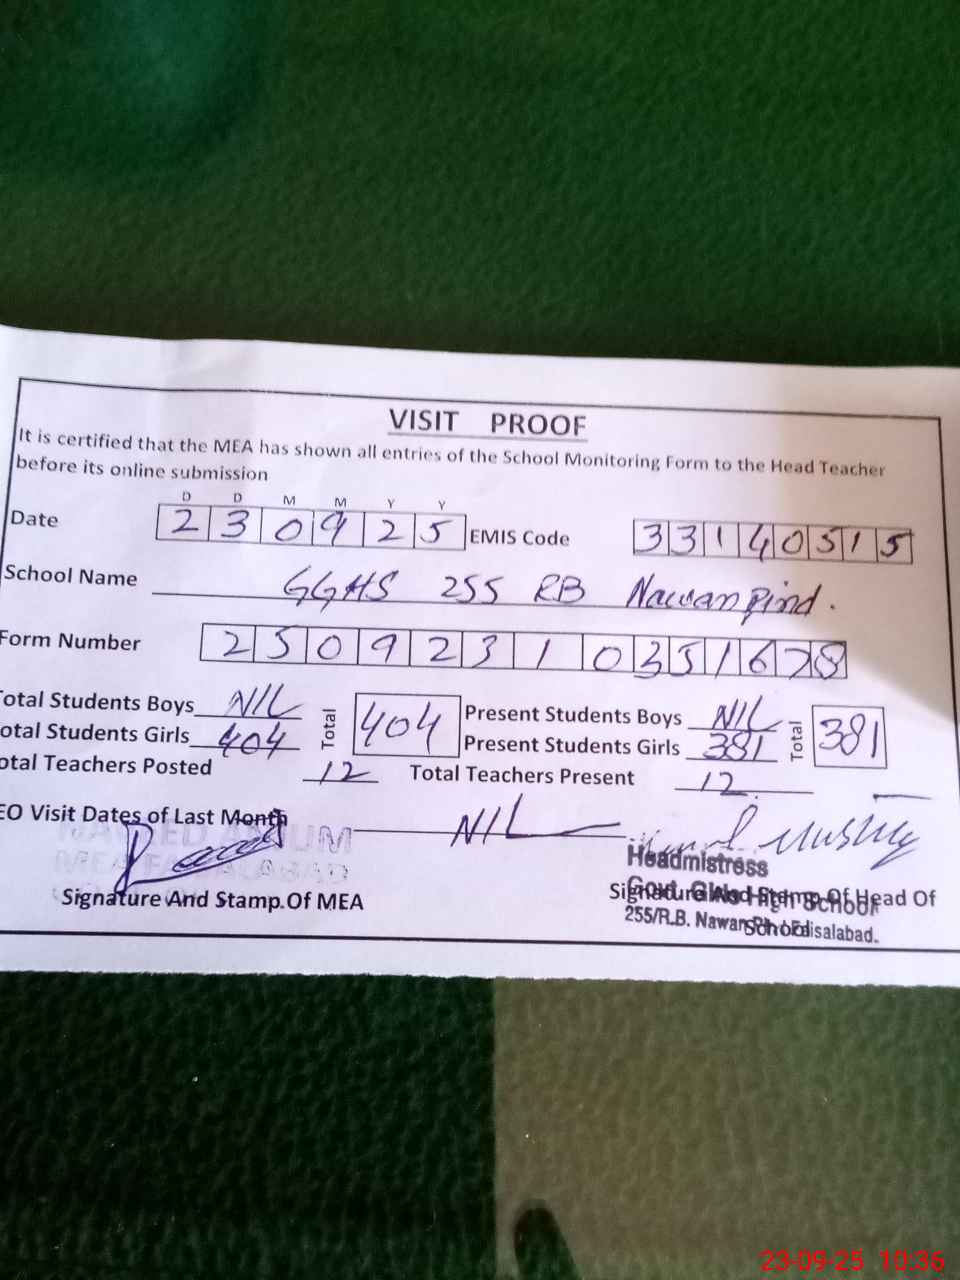 VISIT PROOF
It is certified that the MEA has shown all entries of the School Monitoring Form to the Head Teacher
before its online submission
D D M M Y Y
Date 2 3 0 9 2 5 EMIS Code 3 3 1 4 0 5 1 5
School Name GGHS 255 RB Nawan Pind.
Form Number 2 5 0 9 2 3 1 0 3 5 1 6 7 8
otal Students Boys NIL Total 404 Present Students Boys NIL Total 381
otal Students Girls 404 Present Students Girls 381
otal Teachers Posted 12 Total Teachers Present 12
EO Visit Dates of Last Month NIL
Headmistress
Signature And Stamp Of MEA
Signature And Stamp Of Head Of
School
Govt. Girls High School
255/R.B. Nawan Faisalabad.
23-09-25 10:36